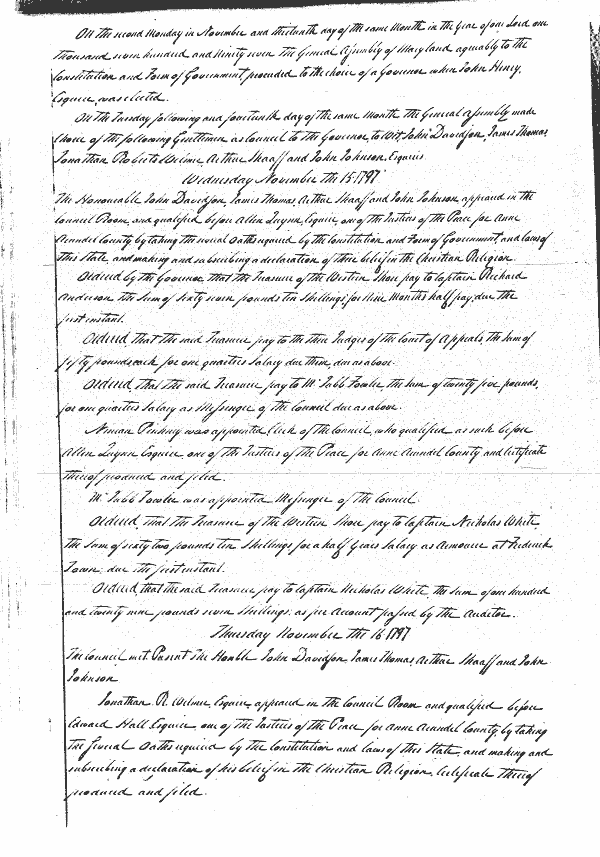 On the second Monday in November and thirteenth day of the same Month in the Year of our Lord one
thousand seven hundred and Ninety seven the General Assembly of Maryland agreeably to the
Constitution and Form of Government proceeded to the choice of a Governor when John Henry,
Esquire, was elected.
On the Tuesday following and fourteenth day of the same Month the General Assembly made
Choice of the following Gentlemen as Council to the Governor, to Wit, John Davidson, James Thomas,
Jonathan Roberts Wilmer, Arthur Shaaff and John Johnson, Esquires
Wednesday November the 15 1797
The Honourable John Davidson, James Thomas, Arthur Shaaff and John Johnson, appeared in the
Council Room, and qualified before Allen Quynn, Esquire, one of the Justices of the Peace for Anne
Arundel County by taking the several Oaths required by the Constitution and Form of Government, and laws of
this State, and making and subscribing a declaration of their belief in the Christian Religion.
Ordered by the Governor that the Treasurer of the Western Shore pay to Captain Richard
Anderson the Sum of sixty seven pounds ten Shillings for Nine Months half pay due the
first instant.
Ordered, that the said Treasurer pay to the three Judges of the Court of Appeals, the sum of
fifty pounds each for one quarters Salary due them, due as above.
Ordered, that the said Treasurer pay to Mr Jubb Fowler, the sum of twenty five pounds,
for one quarters Salary as Messenger of the Council due as above.
Ninian Pinkney was appointed Clerk of the Council, who qualified as such before
Allen Quynn Esquire, one of the Justices of the Peace for Anne Arundel County and Certificate
thereof produced and filed.
Mr Jubb Fowler was appointed Messenger of the Council
Ordered, that the Treasurer of the Western Shore pay to Captain Nicholas White,
the Sum of sixty two pounds ten Shillings for a half Years Salary as Armourer at Frederick
Town, due the first instant.
Ordered, that the said Treasurer pay to Captain Nicholas White, the sum of one hundred
and twenty nine pounds seven Shillings, as per Account passed by the Auditor.
Thursday November the 16 1797
The Council met Present The Honble John Davidson, James Thomas, Arthur Shaaff and John
Johnson
Jonathan R. Wilmer, Esquire, appeared in the Council Room and qualified before
Edward Hall, Esquire, one of the Justices of the Peace for Anne Arundel County by taking
the several Oaths required by the Constitution and laws of this State, and making and
subscribing a declaration of his belief in the Christian Religion, Certificate thereof
produced and filed.